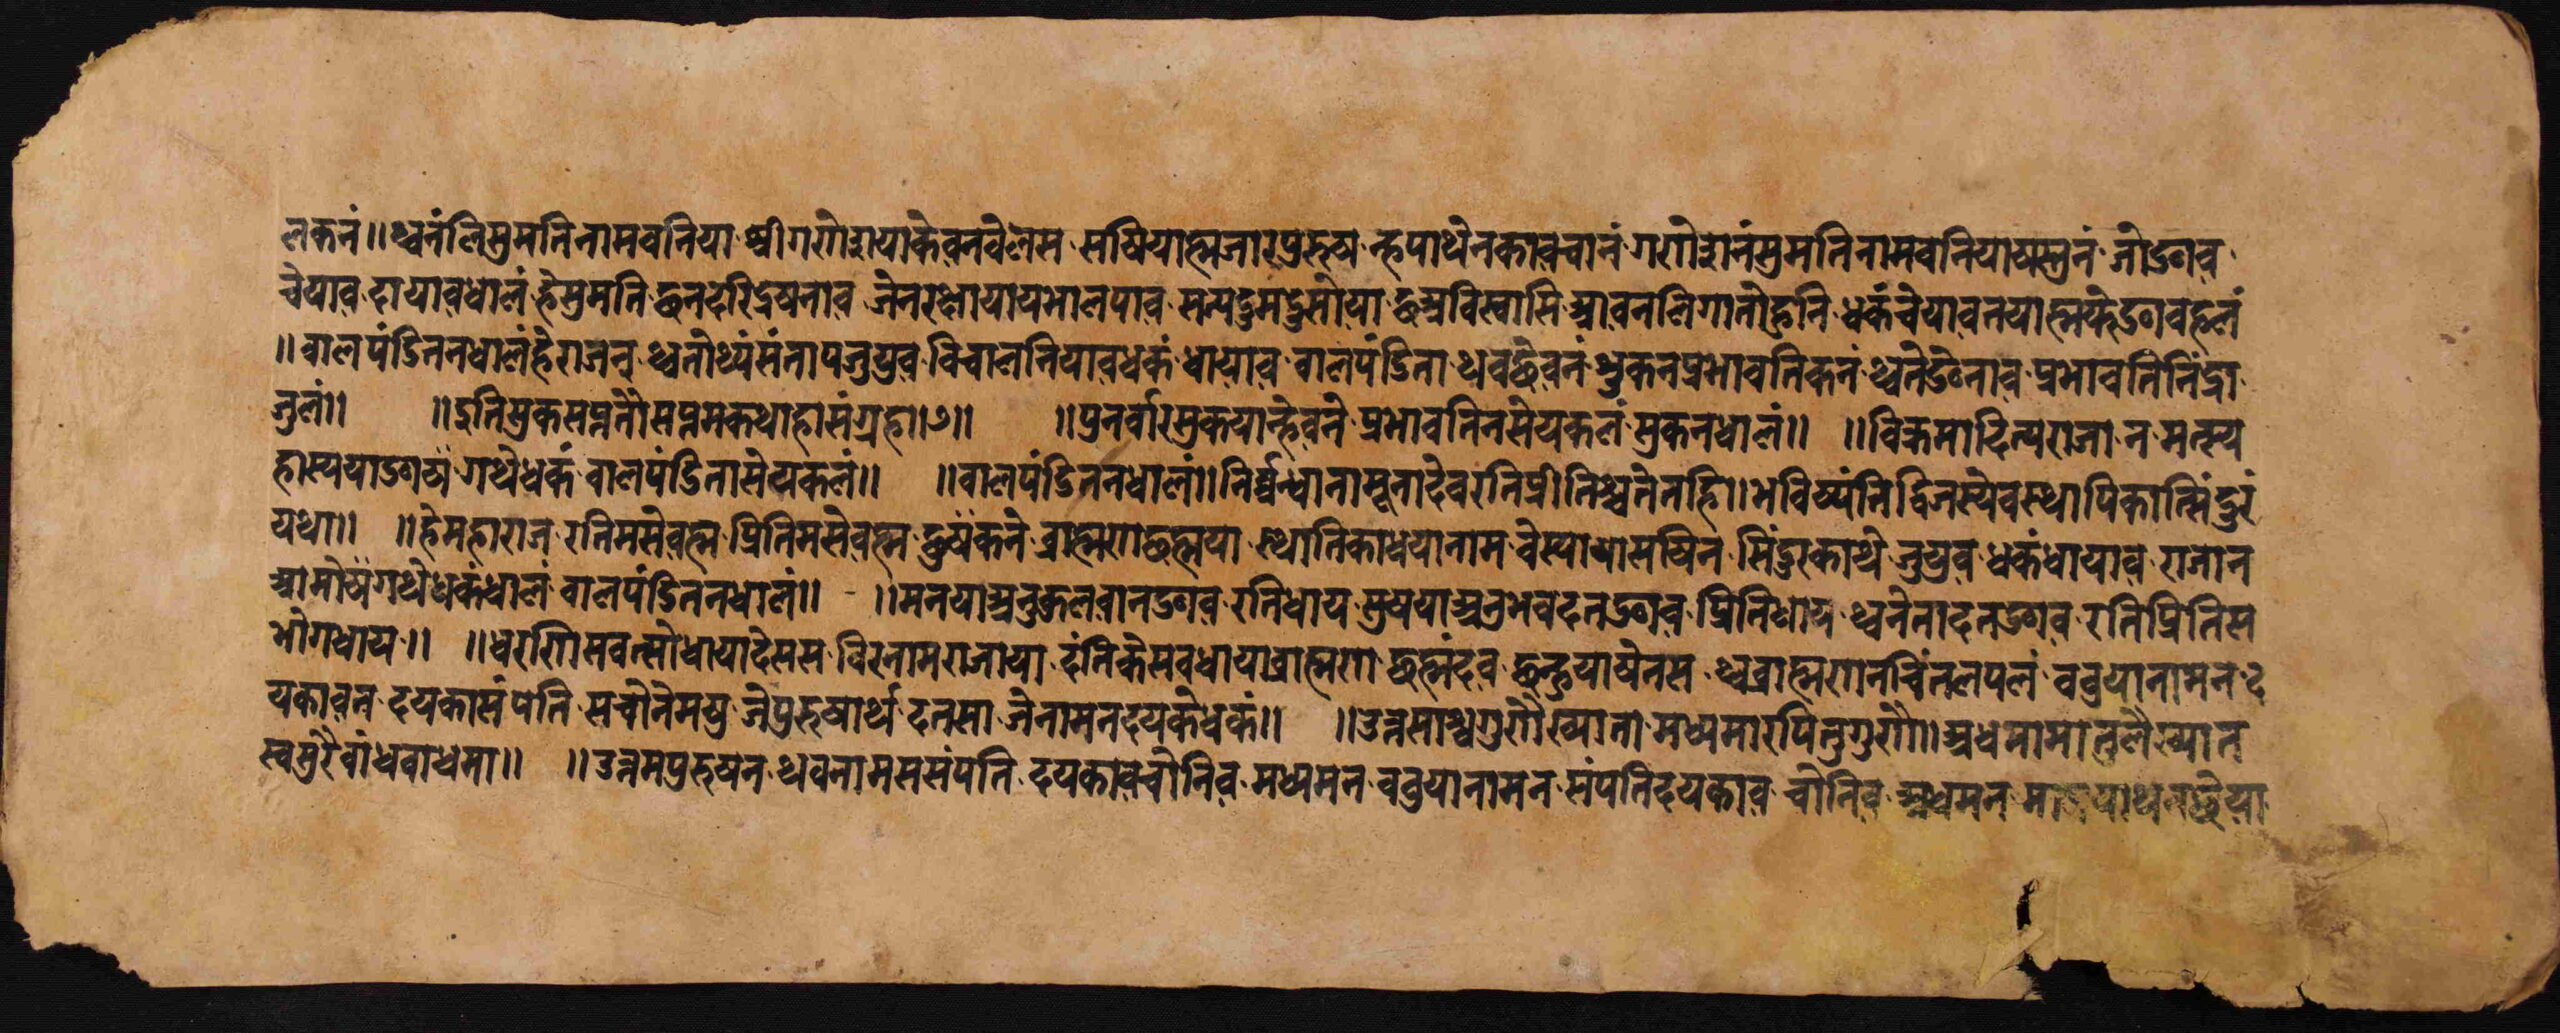 लकनं॥ थ्वनंलि सुमतिनामवनिया श्रीगणेशयाके वनवेलस सषियाह्मजारपुरुष न्हपाथेनकावचानं गणेशनंसुमतिनामवनियाष्वस्वनं जोङाव
चेयाव दायावधालं हे सुमति छनदरिद्रषनाव जेनरक्षायायभालपाव सत्यदुमदुसोया छअविस्वासि आवनलि गातोहुनि धकं चेयावतयाह्म फेङावहलं
॥ बालपंडितनधालं हे राजन् थ्वतोथ्यं संतापजुयुव विचालनियावधकं धायाव बालपंडिता थवछेवनं शुकनप्रभावतिकनं थ्वतेङेनाव प्रभावतिनिंद्रा
जुलं॥ ॥ इति सुकसप्ततौ सप्तमकथाहासंग्रहा॥७॥ ॥ पुनर्वार सुकयान्हेवने प्रभावतिनसेयकलं सुकनधालं॥ ॥ विक्रमादित्यराजान मत्स्य
हास्ययाङाष गथेधकं बालपंडितासेयकलं॥ ॥ बालपंडितनधालं॥ निर्द्धन्वानासूनादेवरतिप्रीतिश्चतेनहि॥ भविष्यंति द्विजस्येवस्थापिकात्सिंदुरं
यथा॥ ॥ हे महाराज रतिमसेवह्म प्रितिमसेवह्म दुषकने ब्राह्मणछह्मया स्थातिकाधयानाम वेस्यायासयिन सिंदुरकाथे जुयुव धकंधायाव राजान
आमोषगथेधकंधालं बालपंडितनधालं॥ ॥ मनयाअनुकुलवानङाव रतिधाय सुषयाअनुभवदतङाव प्रितिधाय थ्वनेतादतङाव रतिप्रितिस
भोगधाय॥ ॥ धरणिसवत्सोधायादेसस विरनामराजाया दंतिकेसवधायाब्राह्मण छह्मंदव छन्हुयाषेनस थ्वब्राह्मणनचिंतलपलं ववुयानामन द
यकावन दयकासंपति सचोनेमयु जेपुरुषार्थ दतसा जेनामनदयकेधकं॥ ॥ उत्तमाश्वगुणेख्याता मध्यमारपितुगुणो॥ अधमामातुलैख्यात
स्वसुरैवांधवाधमा॥ ॥ उत्तमपुरुषन थवनामससंपति दयकावचोनिव मध्यमन ववुयानामन संपतिदयकाव चोनिव अधमन